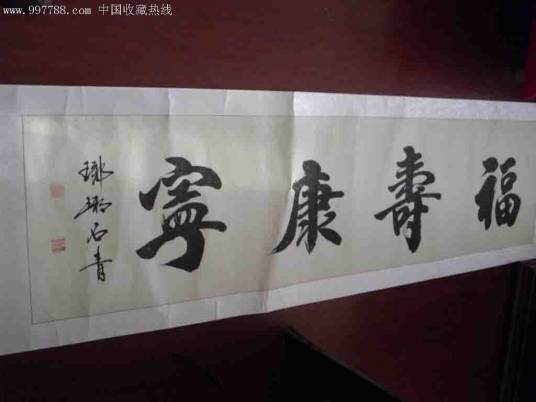 www.997788.com 中国收藏热线
福壽康寧
瑯琊石青